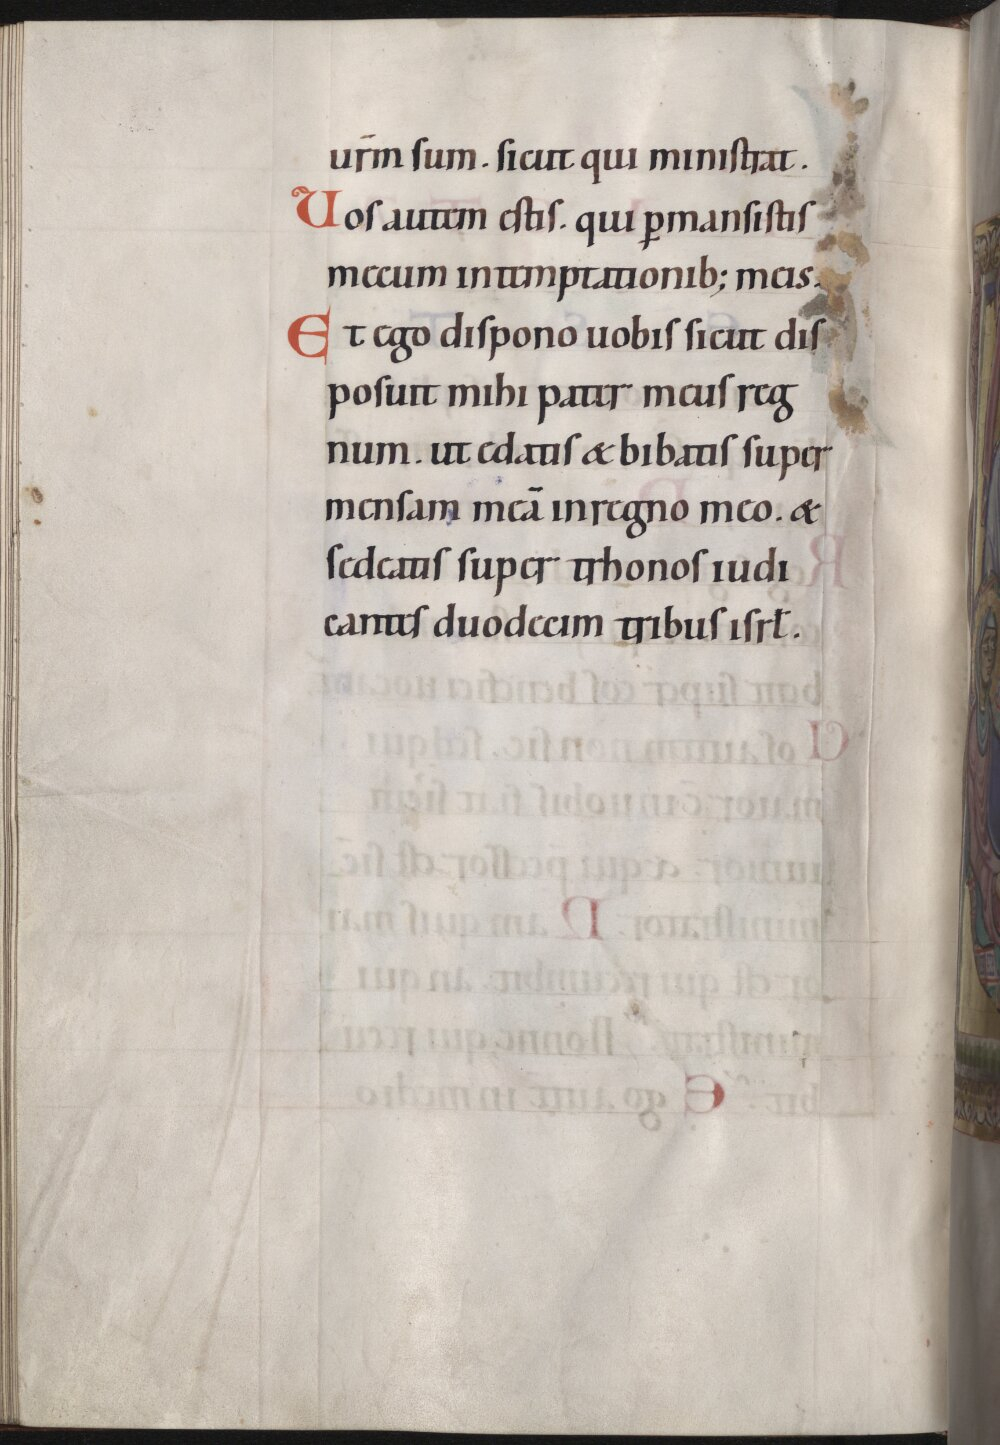 ur̄m sum. sicut qui ministrat.
Uos autem estis. qui ꝑmansistis
mecum in temptationib; meis.
Et ego dispono uobis sicut dis
posuit mihi pater meus reg
num. ut edatis & bibatis super
mensam meā in regno meo. &
sedeatis super thronos iudi
cantes duodecim tribus isrł.